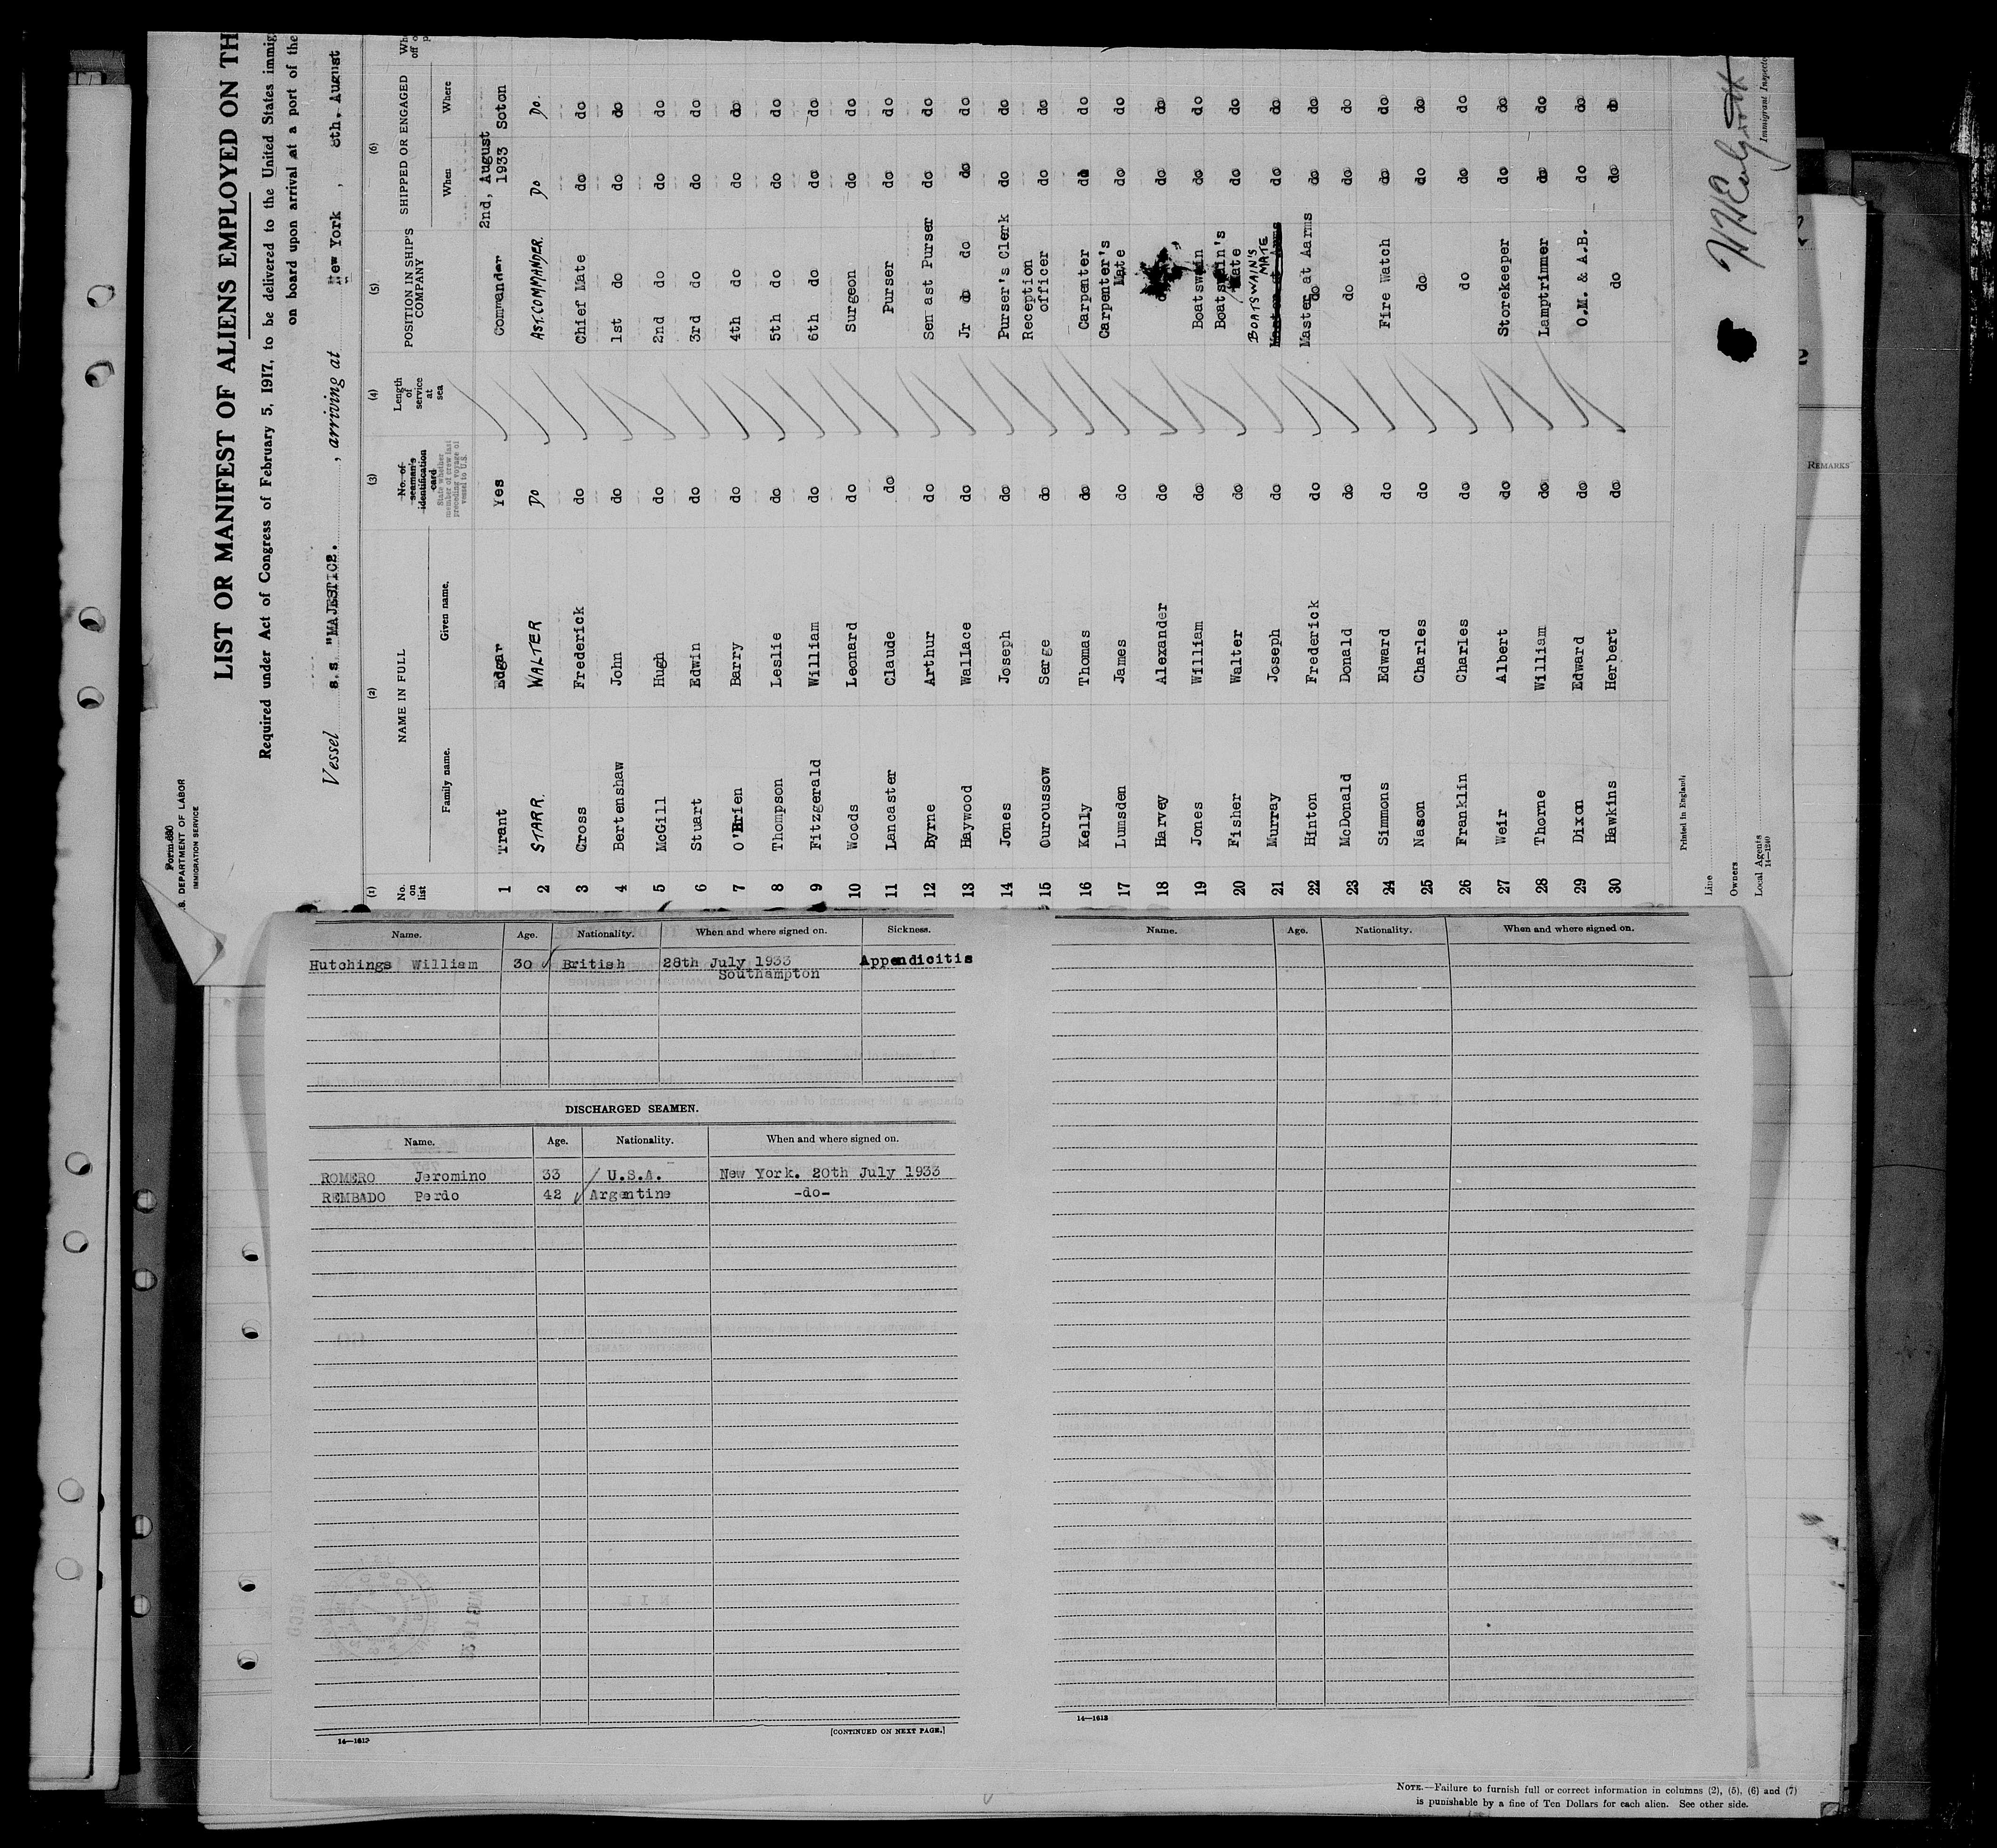 Form 680
U.S. DEPARTMENT OF LABOR
IMMIGRATION SERVICE
LIST OR MANIFEST OF ALIENS EMPLOYED ON TH
Required under Act of Congress of February 5, 1917, to be delivered to the United States immig
on board upon arrival at a port of the
Vessel s.s. "MAJESTIC". , arriving at New York , 8th. August
(1) (2) (3) (4) (5) (6)
No. on list NAME IN FULL Family name. Given name. No. of seaman's identification card State whether member of crew last preceding voyage of vessel to U.S. Length of service at sea POSITION IN SHIP'S COMPANY SHIPPED OR ENGAGED When Where
1 Trant Edgar Yes Commander 2nd, August 1933 Soton
2 STARR. WALTER DO AST.COMMANDER. DO DO.
3 Cross Frederick do Chief Mate do do
4 Bertenshaw John do 1st do do do
5 McGill Hugh do 2nd do do do
6 Stuart Edwin do 3rd do do do
7 O'Brien Barry do 4th do do do
8 Thompson Leslie do 5th do do do
9 Fitzgerald William do 6th do do do
10 Woods Leonard do Surgeon do do
11 Lancaster Claude do Purser do do
12 Byrne Arthur do Sen ast Purser do do
13 Haywood Wallace do Jr do do do do
14 Jones Joseph do Purser's Clerk do do
15 Ouroussow Serge do Reception officer do do
16 Kelly Thomas do Carpenter do do
17 Lumsden James do Carpenter's Mate do do
18 Harvey Alexander do do do
19 Jones William do Boatswain do do
20 Fisher Walter do Boatswain's Mate do do
21 Murray Joseph do Master at Arms BOATSWAIN'S MATE do do
22 Hinton Frederick do Master at Aarms do do do
23 McDonald Donald do do do do
24 Simmons Edward do Fire Watch do do
25 Nason Charles do do do do
26 Franklin Charles do do do do
27 Weir Albert do Storekeeper do do
28 Thorne William do Lamptrimmer do do
29 Dixon Edward do Q.M. & A.B. do do
30 Hawkins Herbert do do do do
Printed in England.
Line
Owners
Local Agents
14—1240
Immigrant Inspecto
REMARKS
Name. Age. Nationality. When and where signed on. Sickness.
Hutchings William 30 British 28th July 1933 Appendicitis
Southampton
DISCHARGED SEAMEN.
Name. Age. Nationality. When and where signed on.
ROMERO Jeromino 33 U.S.A. New York. 20th July 1933
REMBADO Perdo 42 Argentine -do-
[CONTINUED ON NEXT PAGE.]
14—1613
Name. Age. Nationality. When and where signed on.
14—1613
NOTE.—Failure to furnish full or correct information in columns (2), (5), (6) and (7)
is punishable by a fine of Ten Dollars for each alien. See other side.